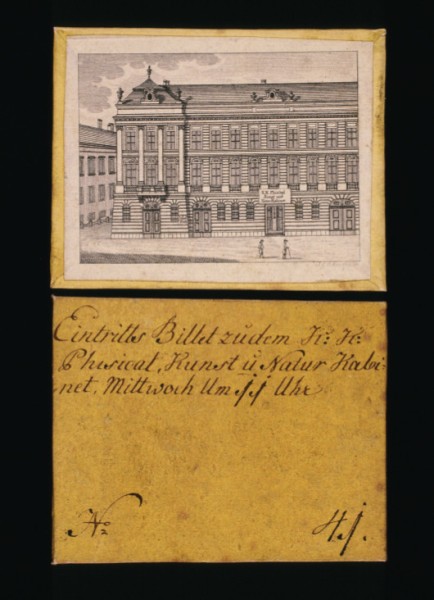 K.K. Phisical
Kunst und
Eintritts Billet zŭdem K: K:
Phisical, Kunst ŭ Natur Kabi-
net, Mittwoch Um 11 Uhr
No 41.